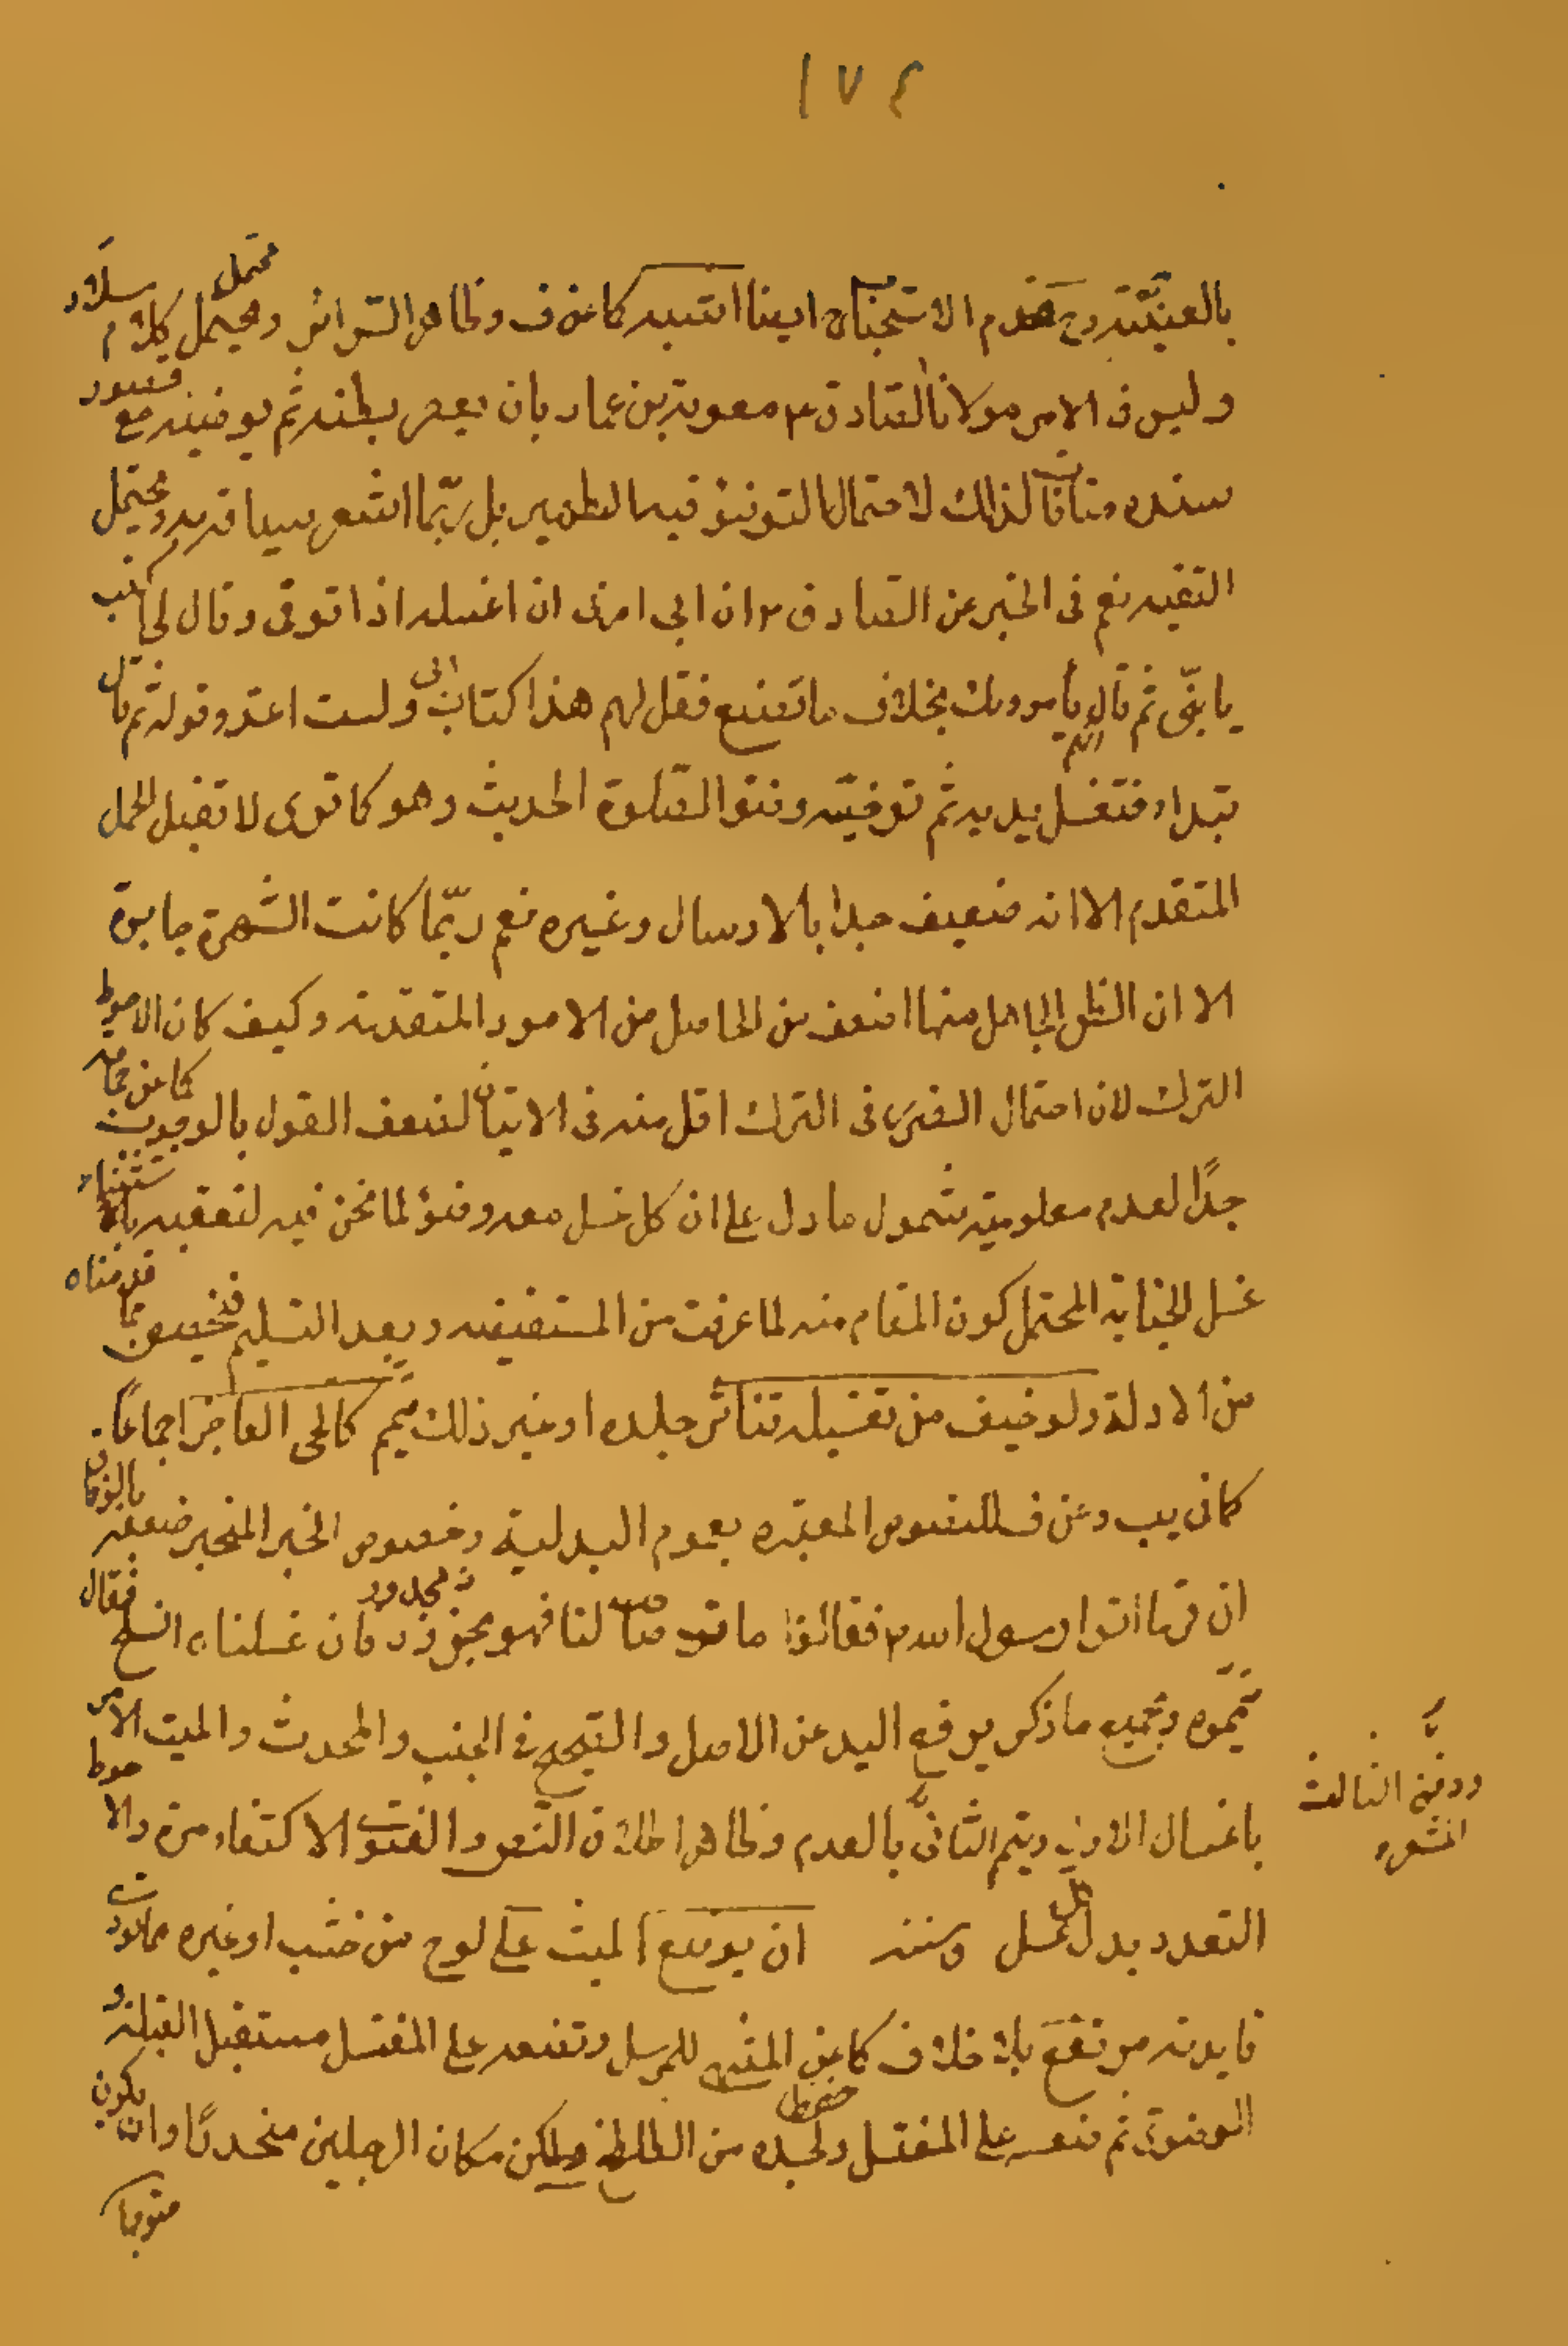 ١٧٤
وعدم الاستحباب ايضا اشبه كما عن ف وظاهر السرائر ومحتمل كلام سلار
وليس فى الامر مولانا الصادق ع معوية بن عمار بان يعصر بطنه ثم يوضيه مع قصور
سنده منافاتا لذلك لاحتمال التوضؤ فيه التطهير بل ربّما اشعر سياقه به ويحتمل
التقيه نعم فى الخبر عن الصادق ع ان ابى امرنى ان اغسله اذا توفى وقال لى اكتب
يا بنّى ثم قال انهم يأمرونك بخلاف ما تصنع فقل لهم هذا كتاب ابى ولست اعدو قوله ثم قال
تبداء فتغسل يديه ثم توضيّه وضوء الصّلوة الحديث وهو كما ترى لا تقبل الحمل
المتقدم الا انه ضعيف جدا بالارسال وغيره نعم ربّما كانت الشهرة جابرة
الا ان الظن الحاصل منها اضعف من الحاصل من الامور المتقدمة وكيف كان الاحوط
الترك لان احتمال الضرر فى الترك اقل منه فى الاتيان لضعف القول بالوجوب كما عن جماعه
جدًا لعدم معلومية شمول ما دل على ان كل غسل معه وضوء لما نحن فيه لتعقيبه باستثناء
غسل الجنابة المحتمل كون المقام منه لما عرفت من المستفيضه وبعد التسليم فتخصيص بما قدمناه
من الادلة ولو خيف من تغسيله تناثر جلده او غير ذلك يمّم كالحى العاجز اجماعًا
كما فى يب وعن ف للنصوص المعتبره بعموم البدلية وخصوص الخبر المنجبر ضعفه بالوفاق
ان قوما اتوا رسول الله ص فقالوا مات صاحب لنا وهو مجدور فان غسلناه انسلخ فقال
يمّموه وبجميع ما ذكر يرفع اليد عن الاصل والصحيح فى الجنب والمحدث والميت الامر
باغتسال الاول ودفن الثالث ويتم الثانى بالعدم وظاهر اطلاق النص والفتوى الاكتفاء مرة والاحوط
التعدد بدل كل غسل وسننه ان يوضع الميت على لوح من خشب او غيره مما يودى
فايدته مرتفع بلا خلاف كما عن المنتهى للمرسل وتضعه على المغتسل مستقبل القبلة و
الرضوى ثم ضعه على المغتسل ولحفظ جسده من التلطخ وليكن مكان الرجلين منحدرًا وان يكون
متوجها